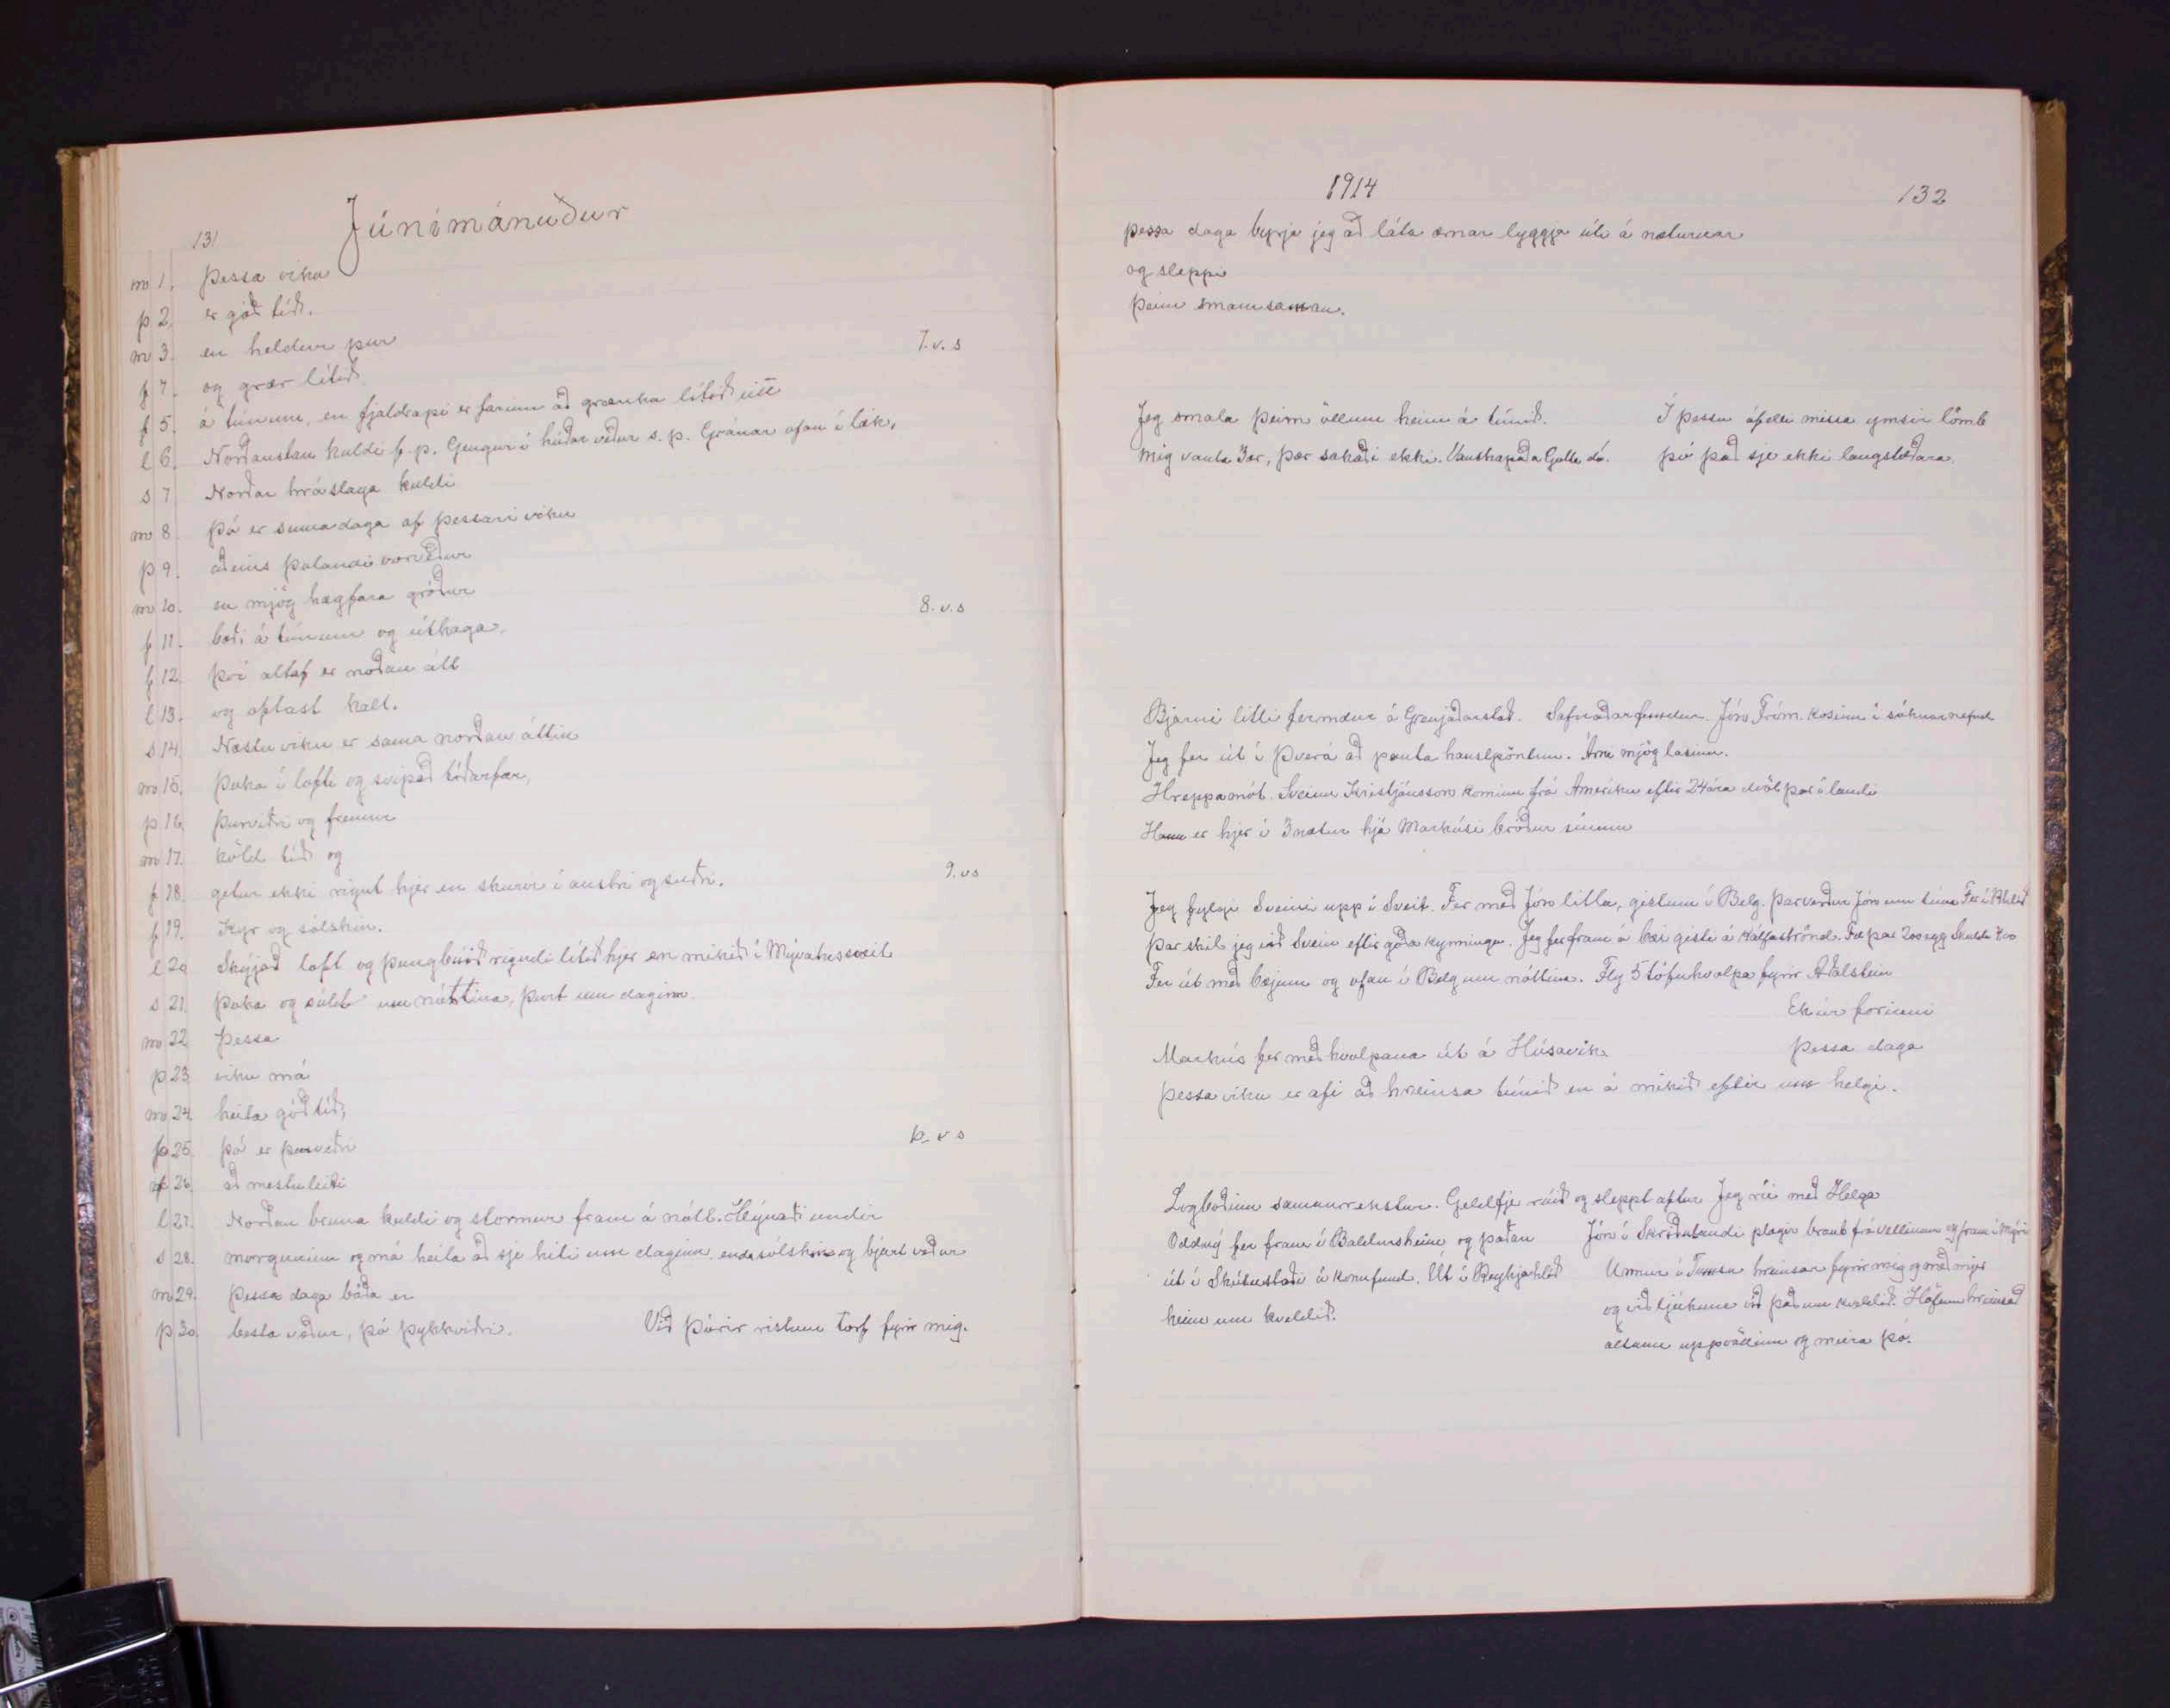 131 Júnímánuður
m 1. Þessa viku
þ 2. er góð tíð.
m 3. en heldur þur 7. v. s
f 4. og grær lítið
f 5. á túnum, en fjaldrapi er farinn að grænka lítið eitt
l 6. Norðaustan kuldi f. p. Gengur í húðar veður s. p. Gránar ofan í læk.
s 7 Norðan hráslaga kuldi
m 8. Þá er suma daga af þessari viku
þ 9. aðeins þolandi vorveður
m 10. en mjög hægfara gróður 8. v. s
f 11. bæði á túnum og úthaga.
f 12. því altaf er norðan átt
l 13. og oftast kalt.
s 14. Næstu viku er sama norðan áttin
m 15. Þoka í lofti og svipað tíðarfar,
þ 16. Þurviðri og fremur
m 17. köld tíð og
f 18. getur ekki rignt hjer en skurir í austri og suðri. 9. v s
f 19. Kyr og sólskin.
l 20 Skýjað loft og þungbúið rigndi lítið hjer en mikið í Mývatnssveit
s 21. Þoka og súld um nóttina, þurt um daginn.
m 22 Þessa
þ 23. viku má
m 24. heita góð tíð,
f 25. þó er þurveðri 10. v s
f 26. að mestu leiti
l 27. Norðan bruna kuldi og stormur fram á nótt. Hlýnaði undir
s 28. morguninn og má heita að sje hiti um daginn enda sólskin og bjart veður
m 29. Þessa daga báða er
þ 30. besta veður, þó þykkviðri. Við Þórir ristum torf fyrir mig.
1914 132
þessa daga byrja jeg að láta ærnar lyggja úti á næturnar
og sleppi
þeim smám saman.
Jeg smala þeim öllum heim á túnið. Í þessu áfelli missa ymsir lömb
mig vanta 3ær, þær sakaði ekki. Vanskapaða Gullu dó. þó það sje ekki langstæðara.
Bjarni litli fermdur á Grenjaðarstað. Safnaðarfundur. Jón Fróm. kosinn í sóknarnefnd
Jeg fer út í Þverá að panta haustpöntun. Árni mjög lasinn.
Hreppamót. Sveinn Kristjánsson kominn frá Ameríku eftir 24 ára dvöl þar í landi
Hann er hjer í 3 nætur hjá Markúsi bróður sínum
Jeg fylgi Sveini upp í Sveit. Fer með Jón litla, gistum í Belg. Þar verður Jón um tíma Fer í Rhlíð
Þar skil jeg við Svein eftir góða kynningu. Jeg fer fram á bæi gisti á Kálfaströnd. Fæ þar 200 egg
Fer út með bæjum og ofan í Belg um nóttina. Fly 5 tófuhvolpa fyrir Aðalstein
Ekúr forinni
Markús fer með hvolpana út á Húsavík þessa daga
þessa viku er afi að hreinsa túnið en á mikið eftir um helgi.
Logboðinn samanrekstur. Geldfje rúið og sleppt aftur Jeg rúi með Helga
Oddný fer fram í Baldursheim og þaðan Jón í Skriðulandi plægir braut frá vellinum og fram í mýri
út í Skútustaði á konufund. Út í Reykjahlíð Unnur í Tumsu hreinsar fyrir mig og með mjer
heim um kveldið. og við ljúkum við það um kveldið. Höfum hreinsað
öllum uppvöllinn og meira þó.